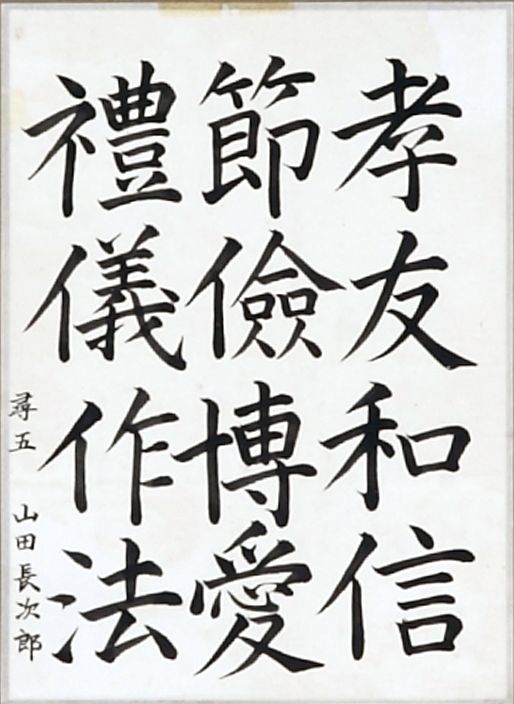 孝友和信
節儉博愛
禮儀作法
尋五 山田長次郎